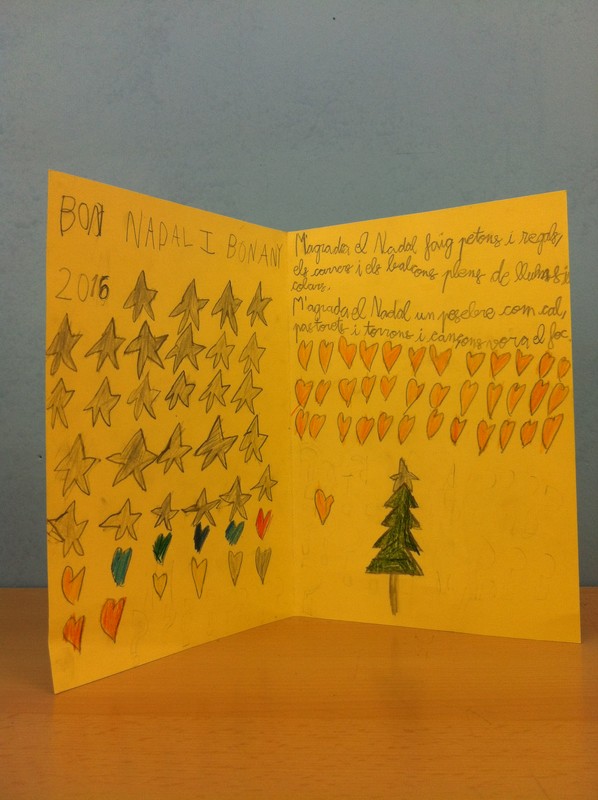 BON NADAL I BON ANY
2016
M'agrada el Nadal faig petons i regals,
els carrers i els balcons plens de llums i
colors.
M'agrada el Nadal un pesebre com cal,
pastorets i torrons i cançons vora el foc.